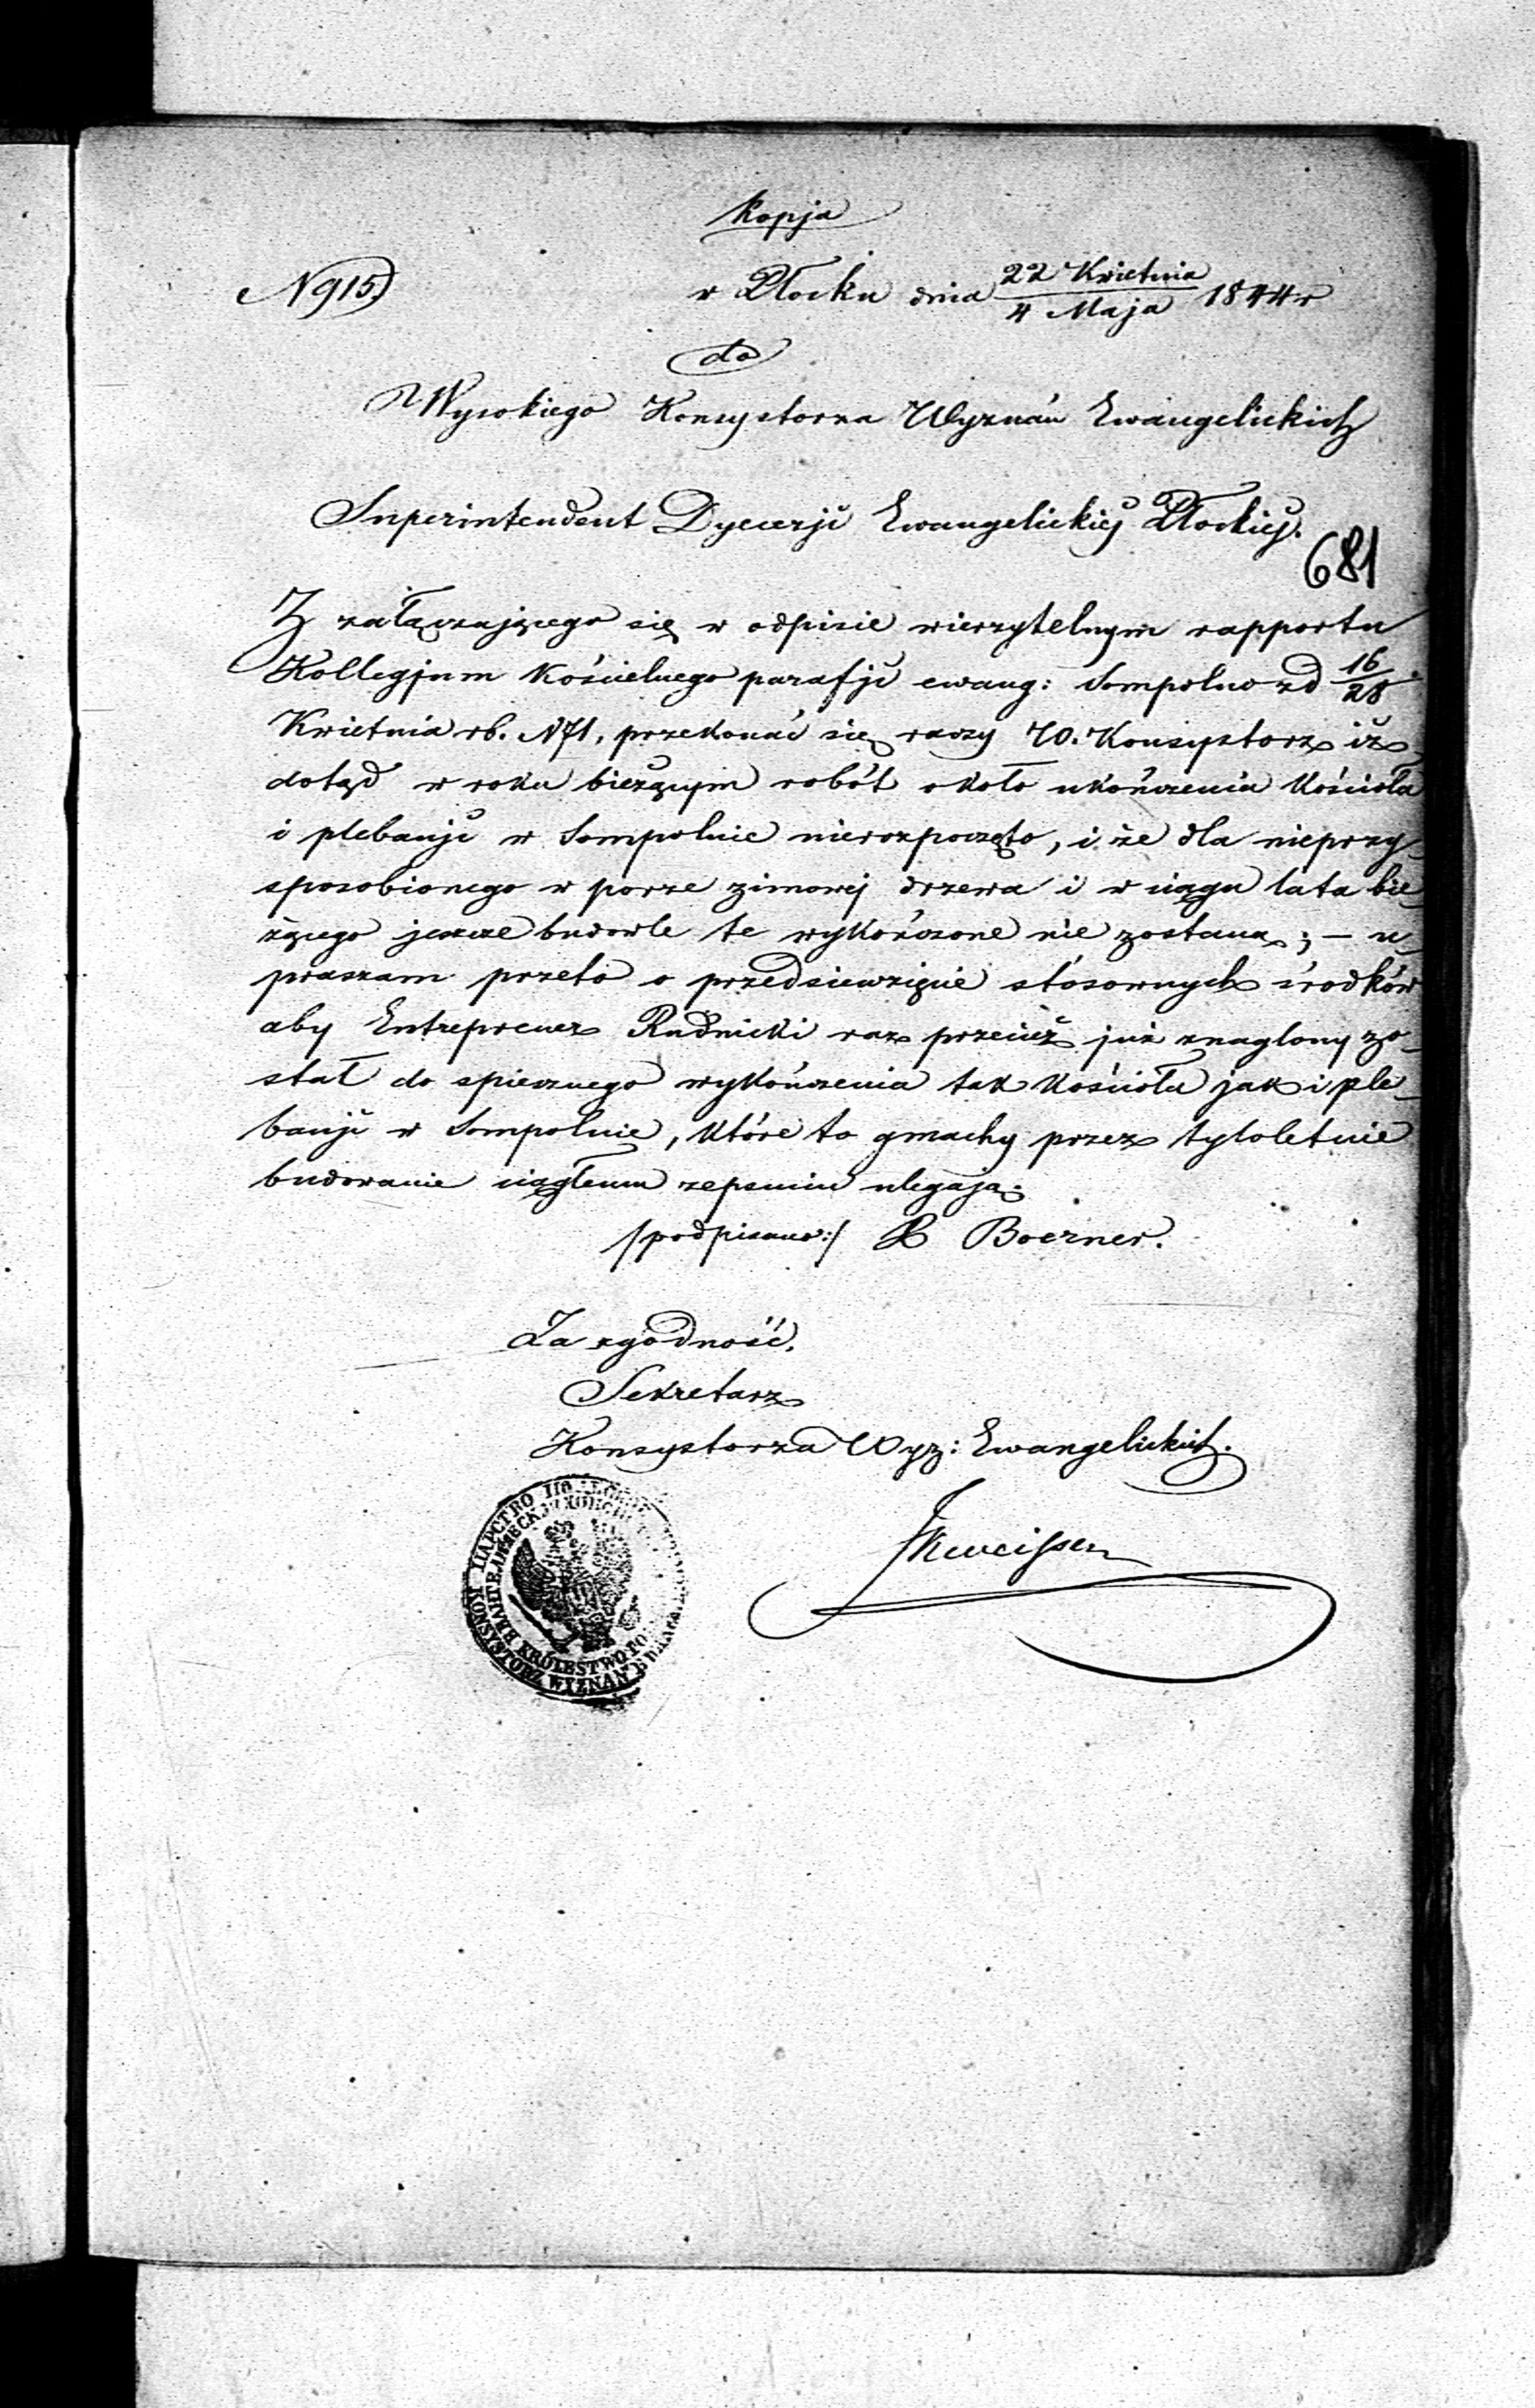 Kopja
N 915.) w Płocku dnia 22 Kwietnia / 4 Maja 1844 r
do
Wysokiego Konsystorza Wyznań Ewangelickich
Superintendent Dyecezji Ewangelickiej Płockiej.
681
Z załączającego się w odpisie wierzytelnym rapportu
Kollegjum Kościelnego parafji ewang: Sompolno z d 16/28
Kwietnia rb. N 71, przekonać się raczy W. Konsystorz iż
dotąd w roku bieżącym robót około ukończenia Kościoła
i plebanji w Sompolnie nierozpoczęto, i że dla nieprzy
sposobionego w porze zimowej drzewa i w ciągu lata bie
żącego jeszcze budowle te wykończone nie zostaną; – u
praszam przeto o przedsiewzięcie stósownych środków
aby Entreprener Rudnicki raz przecież już znaglony zo-
stał do spiesznego wykończenia tak Kościoła jak i ple-
banji w Sompolnie, które to gmachy przez tyloletnie
budowanie ciągłemu zepsuciu ulegają.
/podpisano:/ Boerner.
Za zgodność.
Sekretarz
Konsystorza Wyz: Ewangelickich.
ЦАРСТВО
KRÓLESTWO PO
KONSYSTORZ WYZNAN